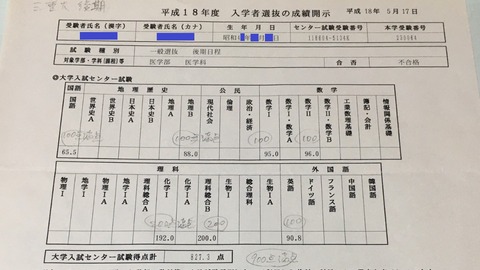 三重大 後期
平成18年度 入学者選抜の成績開示
平成 18年 5月17日
受験者氏名(漢字) 受験者氏名(カナ) 生年月日 センター試験受験番号 本学受験番号
昭和 年 月 日
試験種別 一般選抜 後期日程
対象学部・学科(課程)等 医学部 医学科 合否 不合格
◎大学入試センター試験
国語 地理歴史 公民 数学
国語 世界史A 世界史B 日本史A 日本史B 地理A 地理B 現代社会 倫理 政治・経済 数学Ⅰ 数学Ⅰ・数学A 数学Ⅱ 数学Ⅱ・数学B 工業数理基礎 簿記・会計 情報関係基礎
100点満点 100点満点 100 100
65.5 88.0 95.0 96.0
理科 外国語
物理Ⅰ 地学Ⅰ 理科総合A 化学Ⅰ 理科総合B 生物Ⅰ 英語 ドイツ語 フランス語 中国語 韓国語
200点満点 200 100
192.0 200.0 90.8
大学入試センター試験得点計 827.3 点
900点満点